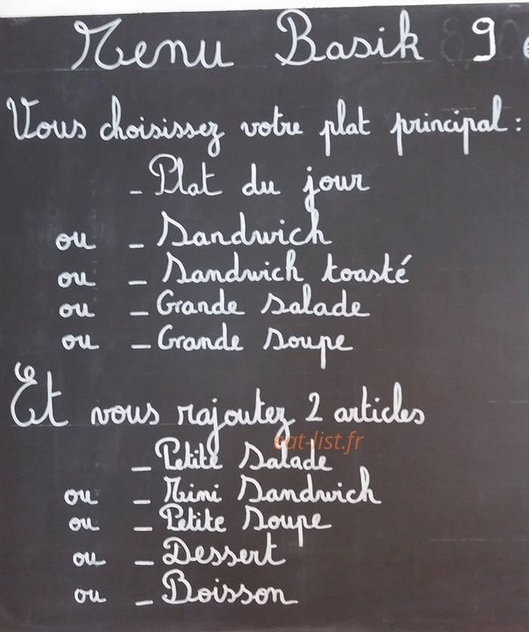 Menu Basik 9
Vous choisissez votre plat principal :
- Plat du jour
ou - Sandwich
ou - Sandwich toasté
ou - Grande Salade
ou - Grande Soupe
Et vous rajoutez 2 articles
eat-list.fr
- Petite Salade
ou - Mini Sandwich
ou - Petite Soupe
ou - Dessert
ou - Boisson